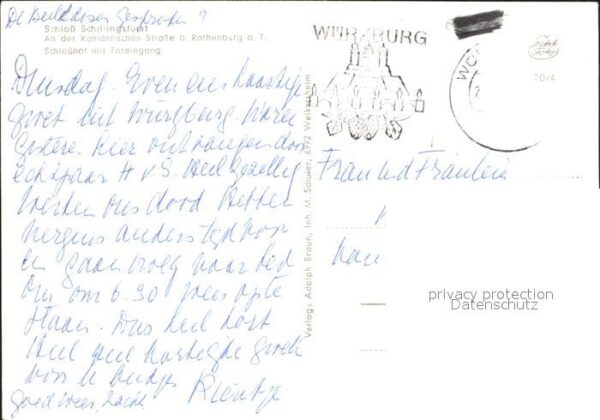 De Beeld
Schloß Schillingsfürst
An der Romantischen Straße b. Rothenburg o. T.
Schloßhof mit Toreingang
WÜRZBURG
WÜ
7024
Dinsdag. Even een haastige
groet uit Würzburg. Waren
gisteren hier ontvangen door
echtpaar H v S. Heel gezellig
werden ons door Hebben
nergens anders tijd voor
en gaan vroeg naar bed
om om 6.30 weer op te
staan. Dus heel kort
Heel veel hartelijke groeten
voor u beidjes Rientje
goed
Frau und Fräulein
Verlag: Adolph Braun, Inh. M. Schuler, 6992 Weikersheim
privacy protection
Datenschutz